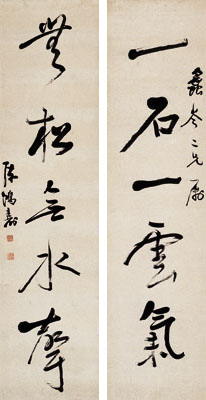 一石一雲氣
岑二兄屬
無松無水聲
陳鴻壽